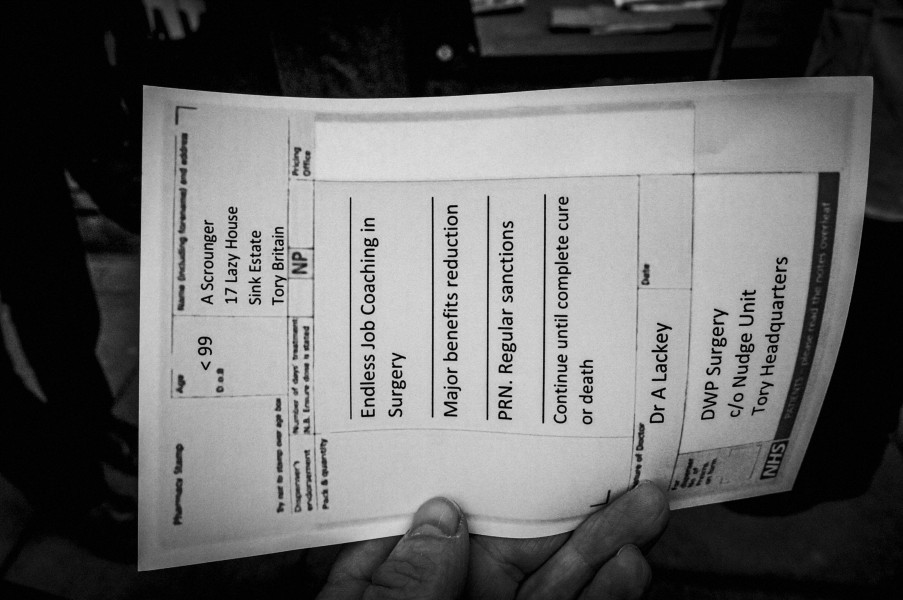 Pharmacy Stamp
Age
< 99
D.o.B
Name (including forename) and address
A Scrounger
17 Lazy House
Sink Estate
Tory Britain
Try not to stamp over age box
Number of days' treatment
N.B. Ensure dose is stated
NP
Dispenser's
endorsement
Pack & quantity
Pricing
Office
Endless Job Coaching in
Surgery
Major benefits reduction
PRN. Regular sanctions
Continue until complete cure
or death
of Doctor
Date
Dr A Lackey
DWP Surgery
c/o Nudge Unit
Tory Headquarters
NHS
PATIENTS - please read the notes overleaf